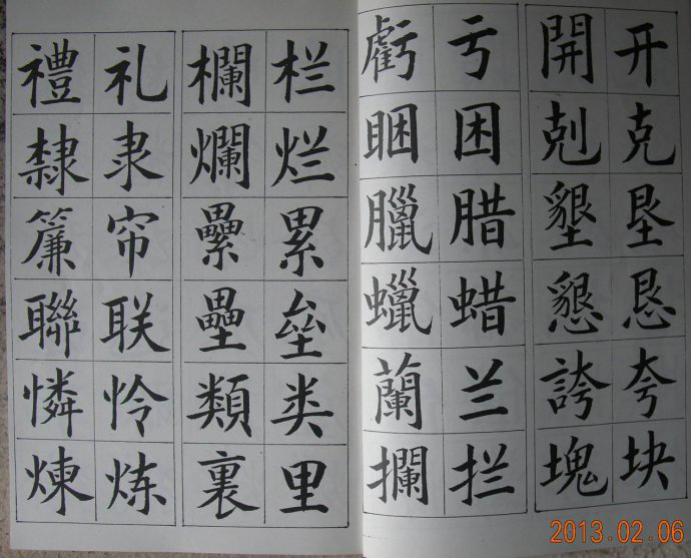 开克垦恳夸块
開剋墾懇誇塊
亏困腊蜡兰拦
虧睏臘蠟蘭攔
栏烂累垒类里
欄爛纍壘類裏
礼隶帘联怜炼
禮隸簾聯憐煉
2013.02.06